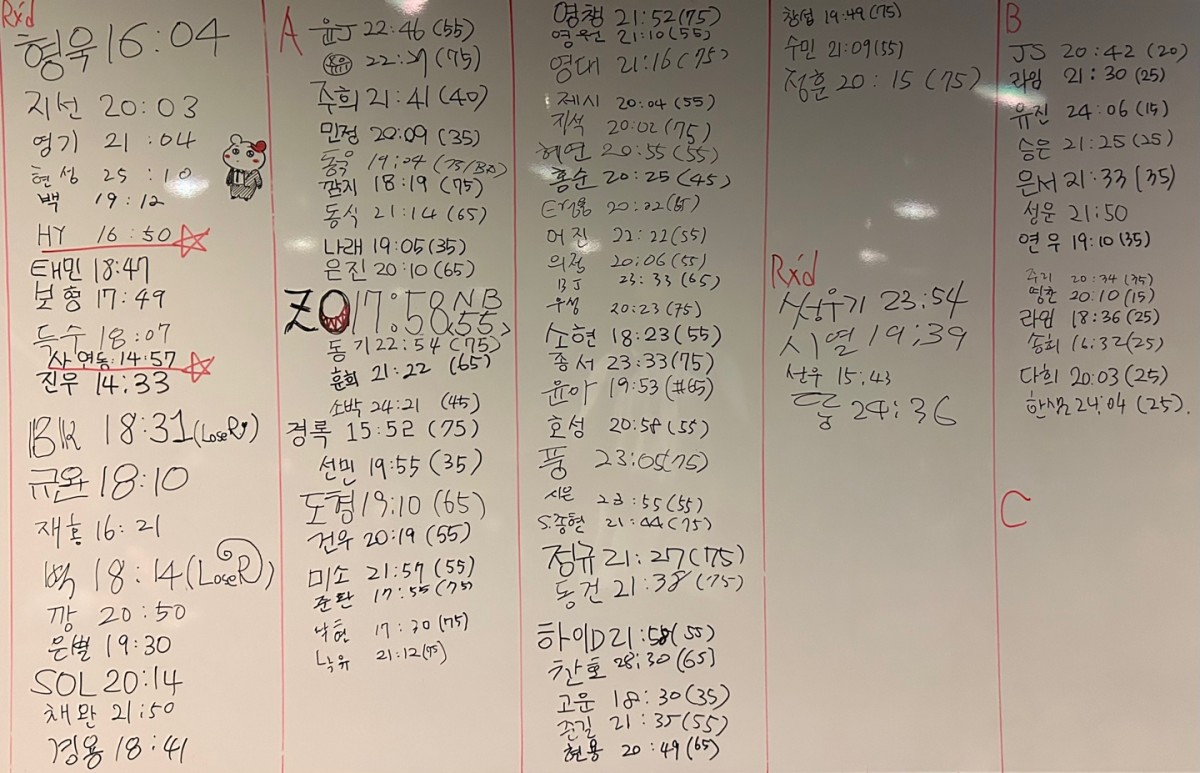 Rx'd
형욱 16:04
지선 20:03
영기 21:04
현성 25:10
백 19:12
HY 16:50
태민 18:47
보형 17:49
득수 18:07
사연동:14:57
진우 14:33
BK 18:31(LoseR)
규완 18:10
재홍 16:21
벽 18:14(LoseR)
깡 20:50
은별 19:30
SOL 20:14
채완 21:50
경용 18:41
A
윤J 22:46 (55)
22:27 (75)
주희 21:41 (40)
민정 20:09 (35)
동욱 19:04
깜지 18:19 (75)
동식 21:14 (65)
나래 19:05 (35)
은진 20:10 (65)
ZO 17:58 NB 55
동기 22:54 (75)
훈희 21:22 (65)
소박 24:21 (45)
경록 15:52 (75)
선민 19:55 (35)
도형 19:10 (65)
건우 20:19 (55)
미소 21:57 (55)
준탄 17:55 (75)
낙현 17:30 (75)
낙유 21:12
영챔 21:52(75)
영원 21:10(55)
영대 21:16(75)
제시 20:04 (55)
지석 20:02 (75)
혜연 20:55 (55)
홍순 20:25 (45)
20:22(65)
어진 22:22(55)
의정 20:06 (55)
BJ 23:33 (65)
우성 20:23 (75)
소현 18:23 (55)
종서 23:33 (75)
윤아 19:53 (#65)
호성 20:58 (55)
풍 23:05(75)
시은 23:55(55)
S.종현 21:44 (75)
정규 21:27(75)
동건 21:38 (75)
하이D 21:58(55)
찬호 28:30 (65)
고운 18:30 (35)
준길 21:35(55)
현용 20:49(65)
창섭 19:49 (75)
수민 21:09(55)
정훈 20:15 (75)
Rx'd
성우기 23:54
시열 19:39
선우 15:43
웅 24:36
B
JS 20:42 (20)
라임 21:30 (25)
유진 24:06 (15)
승은 21:25 (25)
은서 21:33 (35)
성운 21:50
연우 19:10 (35)
주리 20:34 (35)
명훈 20:10 (15)
라임 18:36 (25)
송희 16:32(25)
다희 20:03 (25)
한샘 24:04 (25).
C